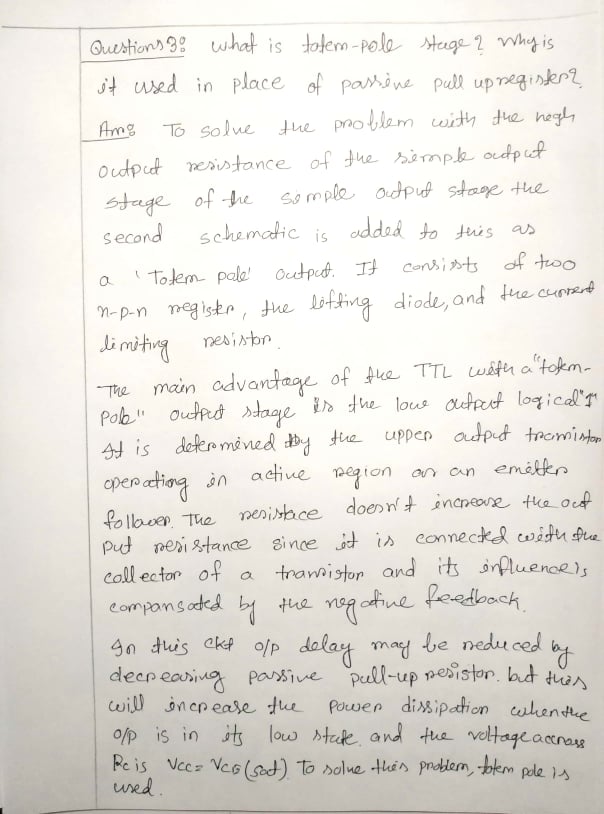 Questions 3: what is totem-pole stage? Why is
it used in place of passive pull up register?
Ans: To solve the problem with the hegh
output resistance of the simple output
stage of the simple output stage the
second schematic is added to this as
a 'Totem pale' output. It consists of two
n-p-n register, the lofting diode, and the current
limiting resistor.
The main advantage of the TTL with a "totem-
Pole" output stage is the low output logical "1"
It is determined by the upper output transistor
operating in active region as an emitter
follower. The resistace doesn't increase the out
put resistance since it is connected with the
collector of a transistor and its influence is
compansated by the negative feedback.
In this ckt o/p delay may be reduced by
decreasing passive pull-up resistor. but this
will increase the power dissipation when the
o/p is in its low state. and the voltage across
Rc is Vcc = VCG (sat). To solve this problem, totem pole is
used.